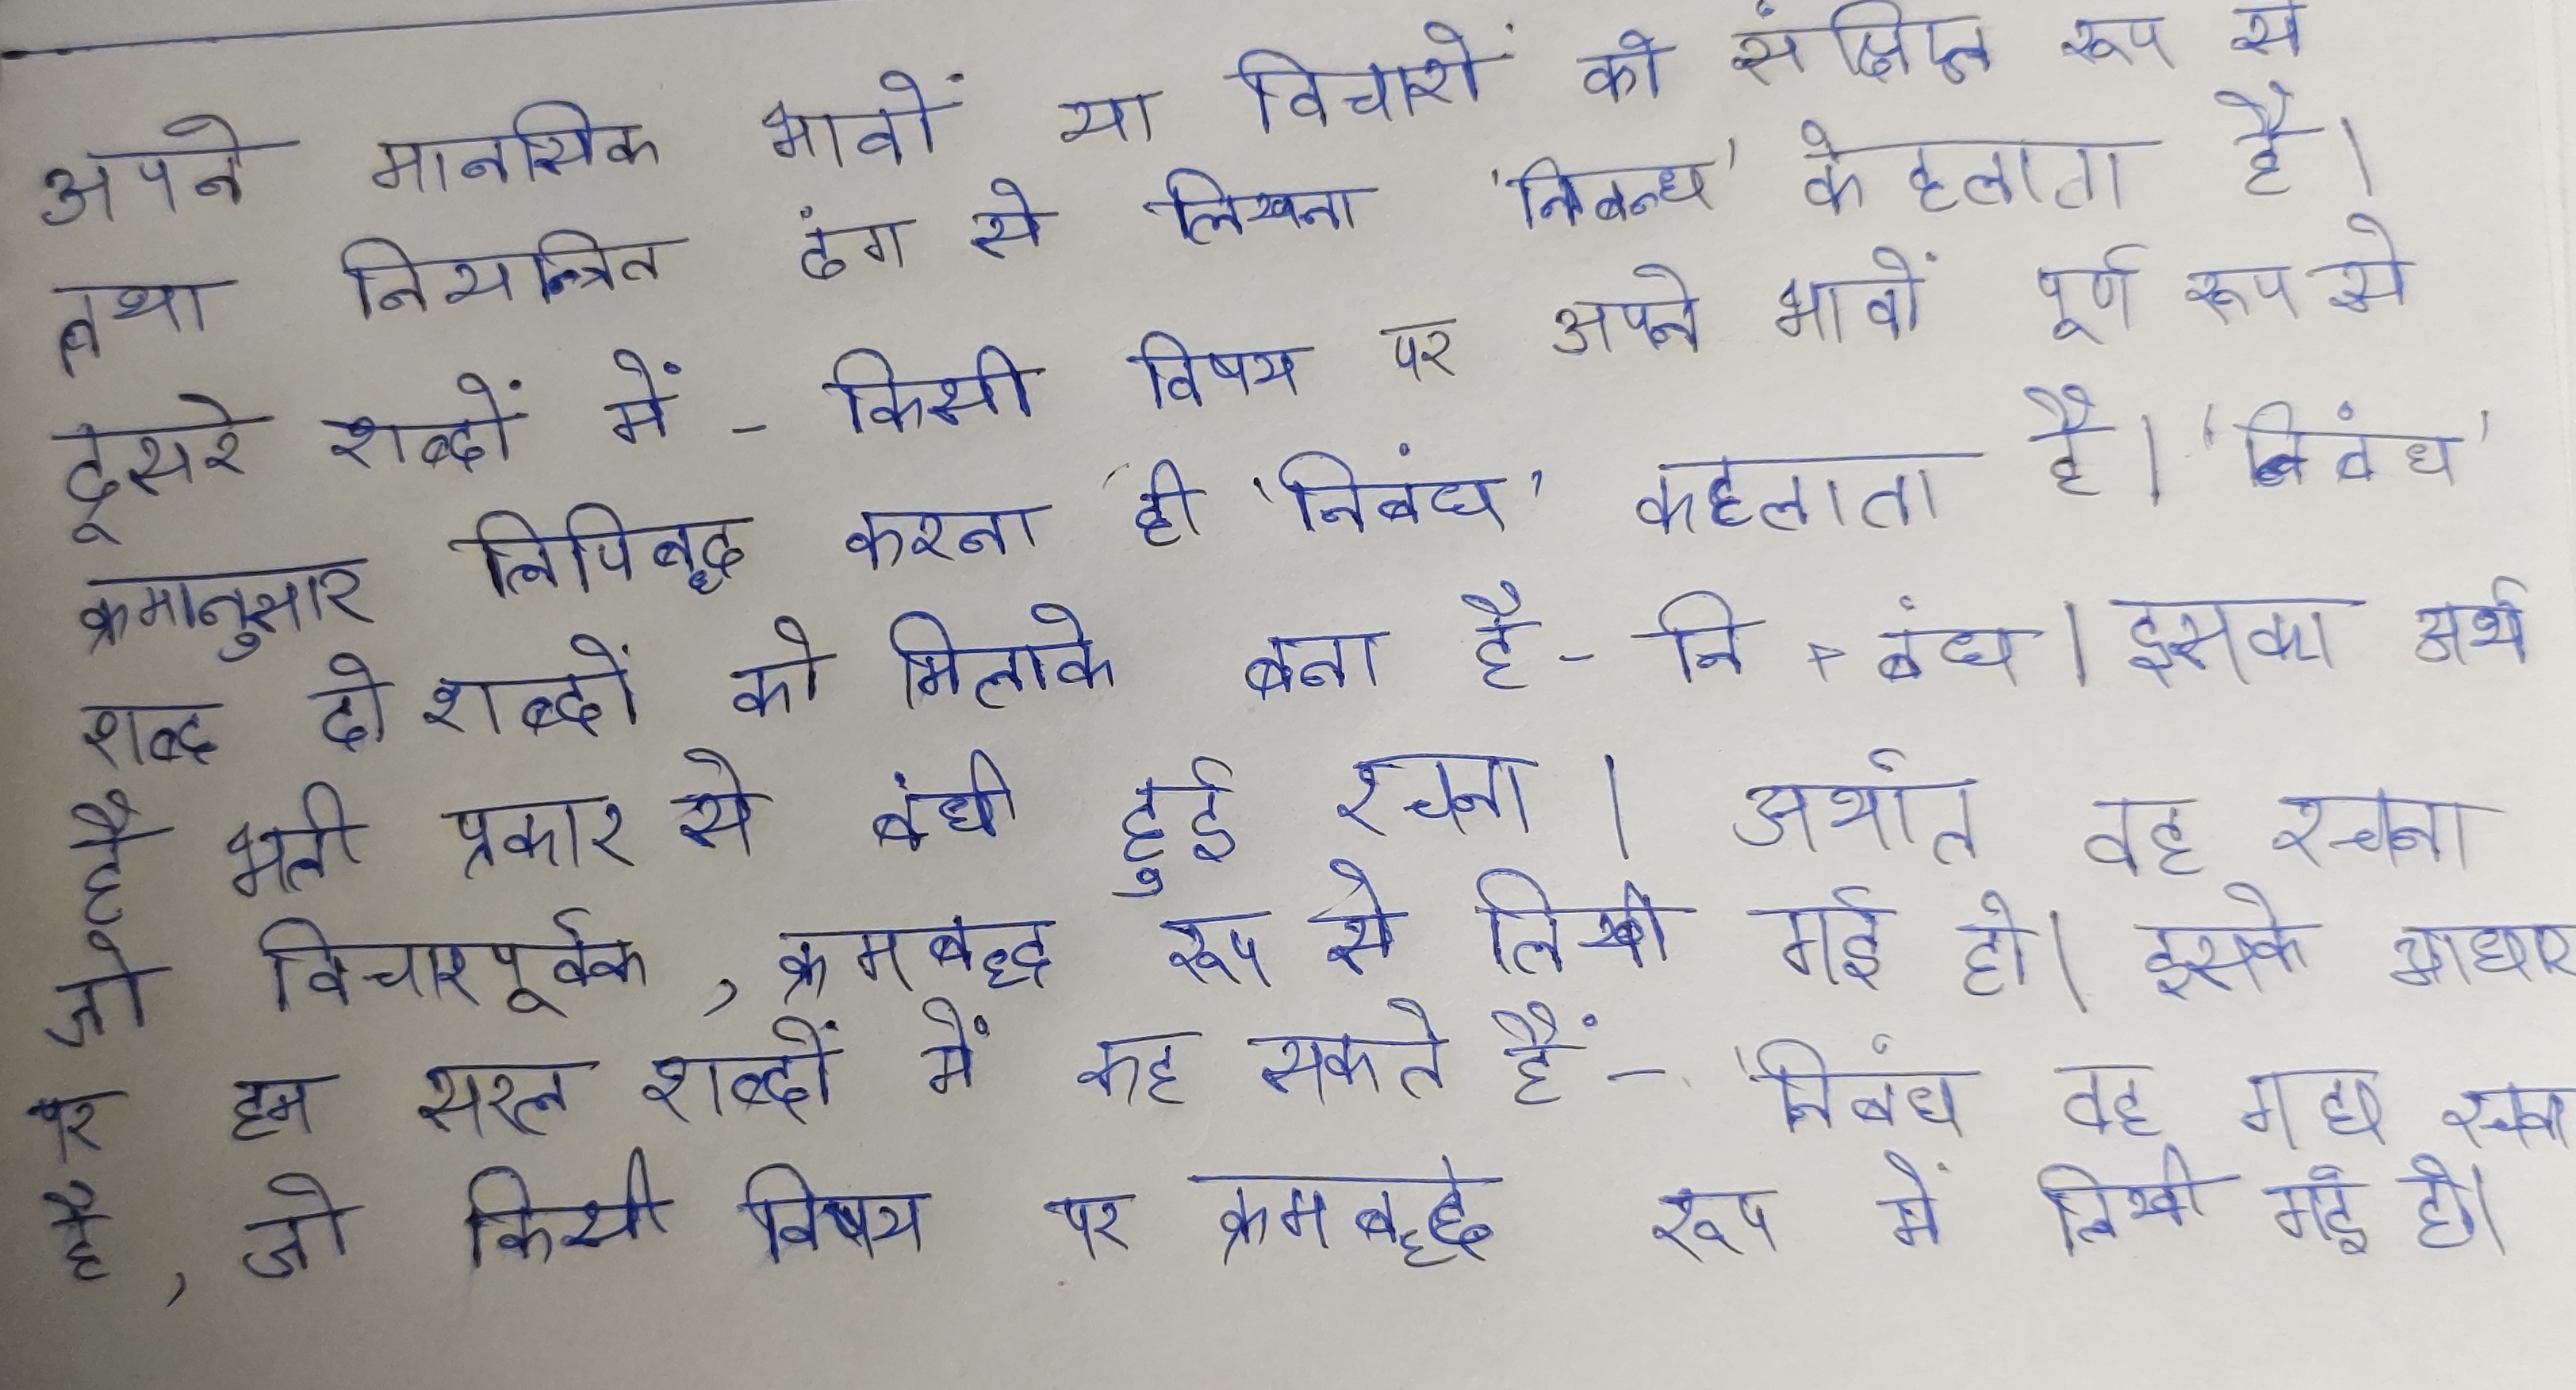 अपने मानसिक भावों या विचारों को संक्षिप्त रूप से
तथा नियन्त्रित ढंग से लिखना 'निबन्ध' केहलाता है।
दूसरे शब्दों में - किसी विषय पर अपने भावों पूर्ण रूप से
क्रमानुसार लिपिबद्ध करना ही 'निबंध' कहलाता है। 'निबंध'
शब्द दो शब्दों को मिलाके बना है - नि + बंध। इसका अर्थ
है भली प्रकार से बंधी हुई रचना। अर्थात वह रचना
जो विचारपूर्वक, क्रमबद्ध रूप से लिखी गई हो। इसके आधार
पर हम सरल शब्दों में कह सकते हैं - 'निबंध वह गद्य रचना
है, जो किसी विषय पर क्रमबद्ध रूप में लिखी गई हो।